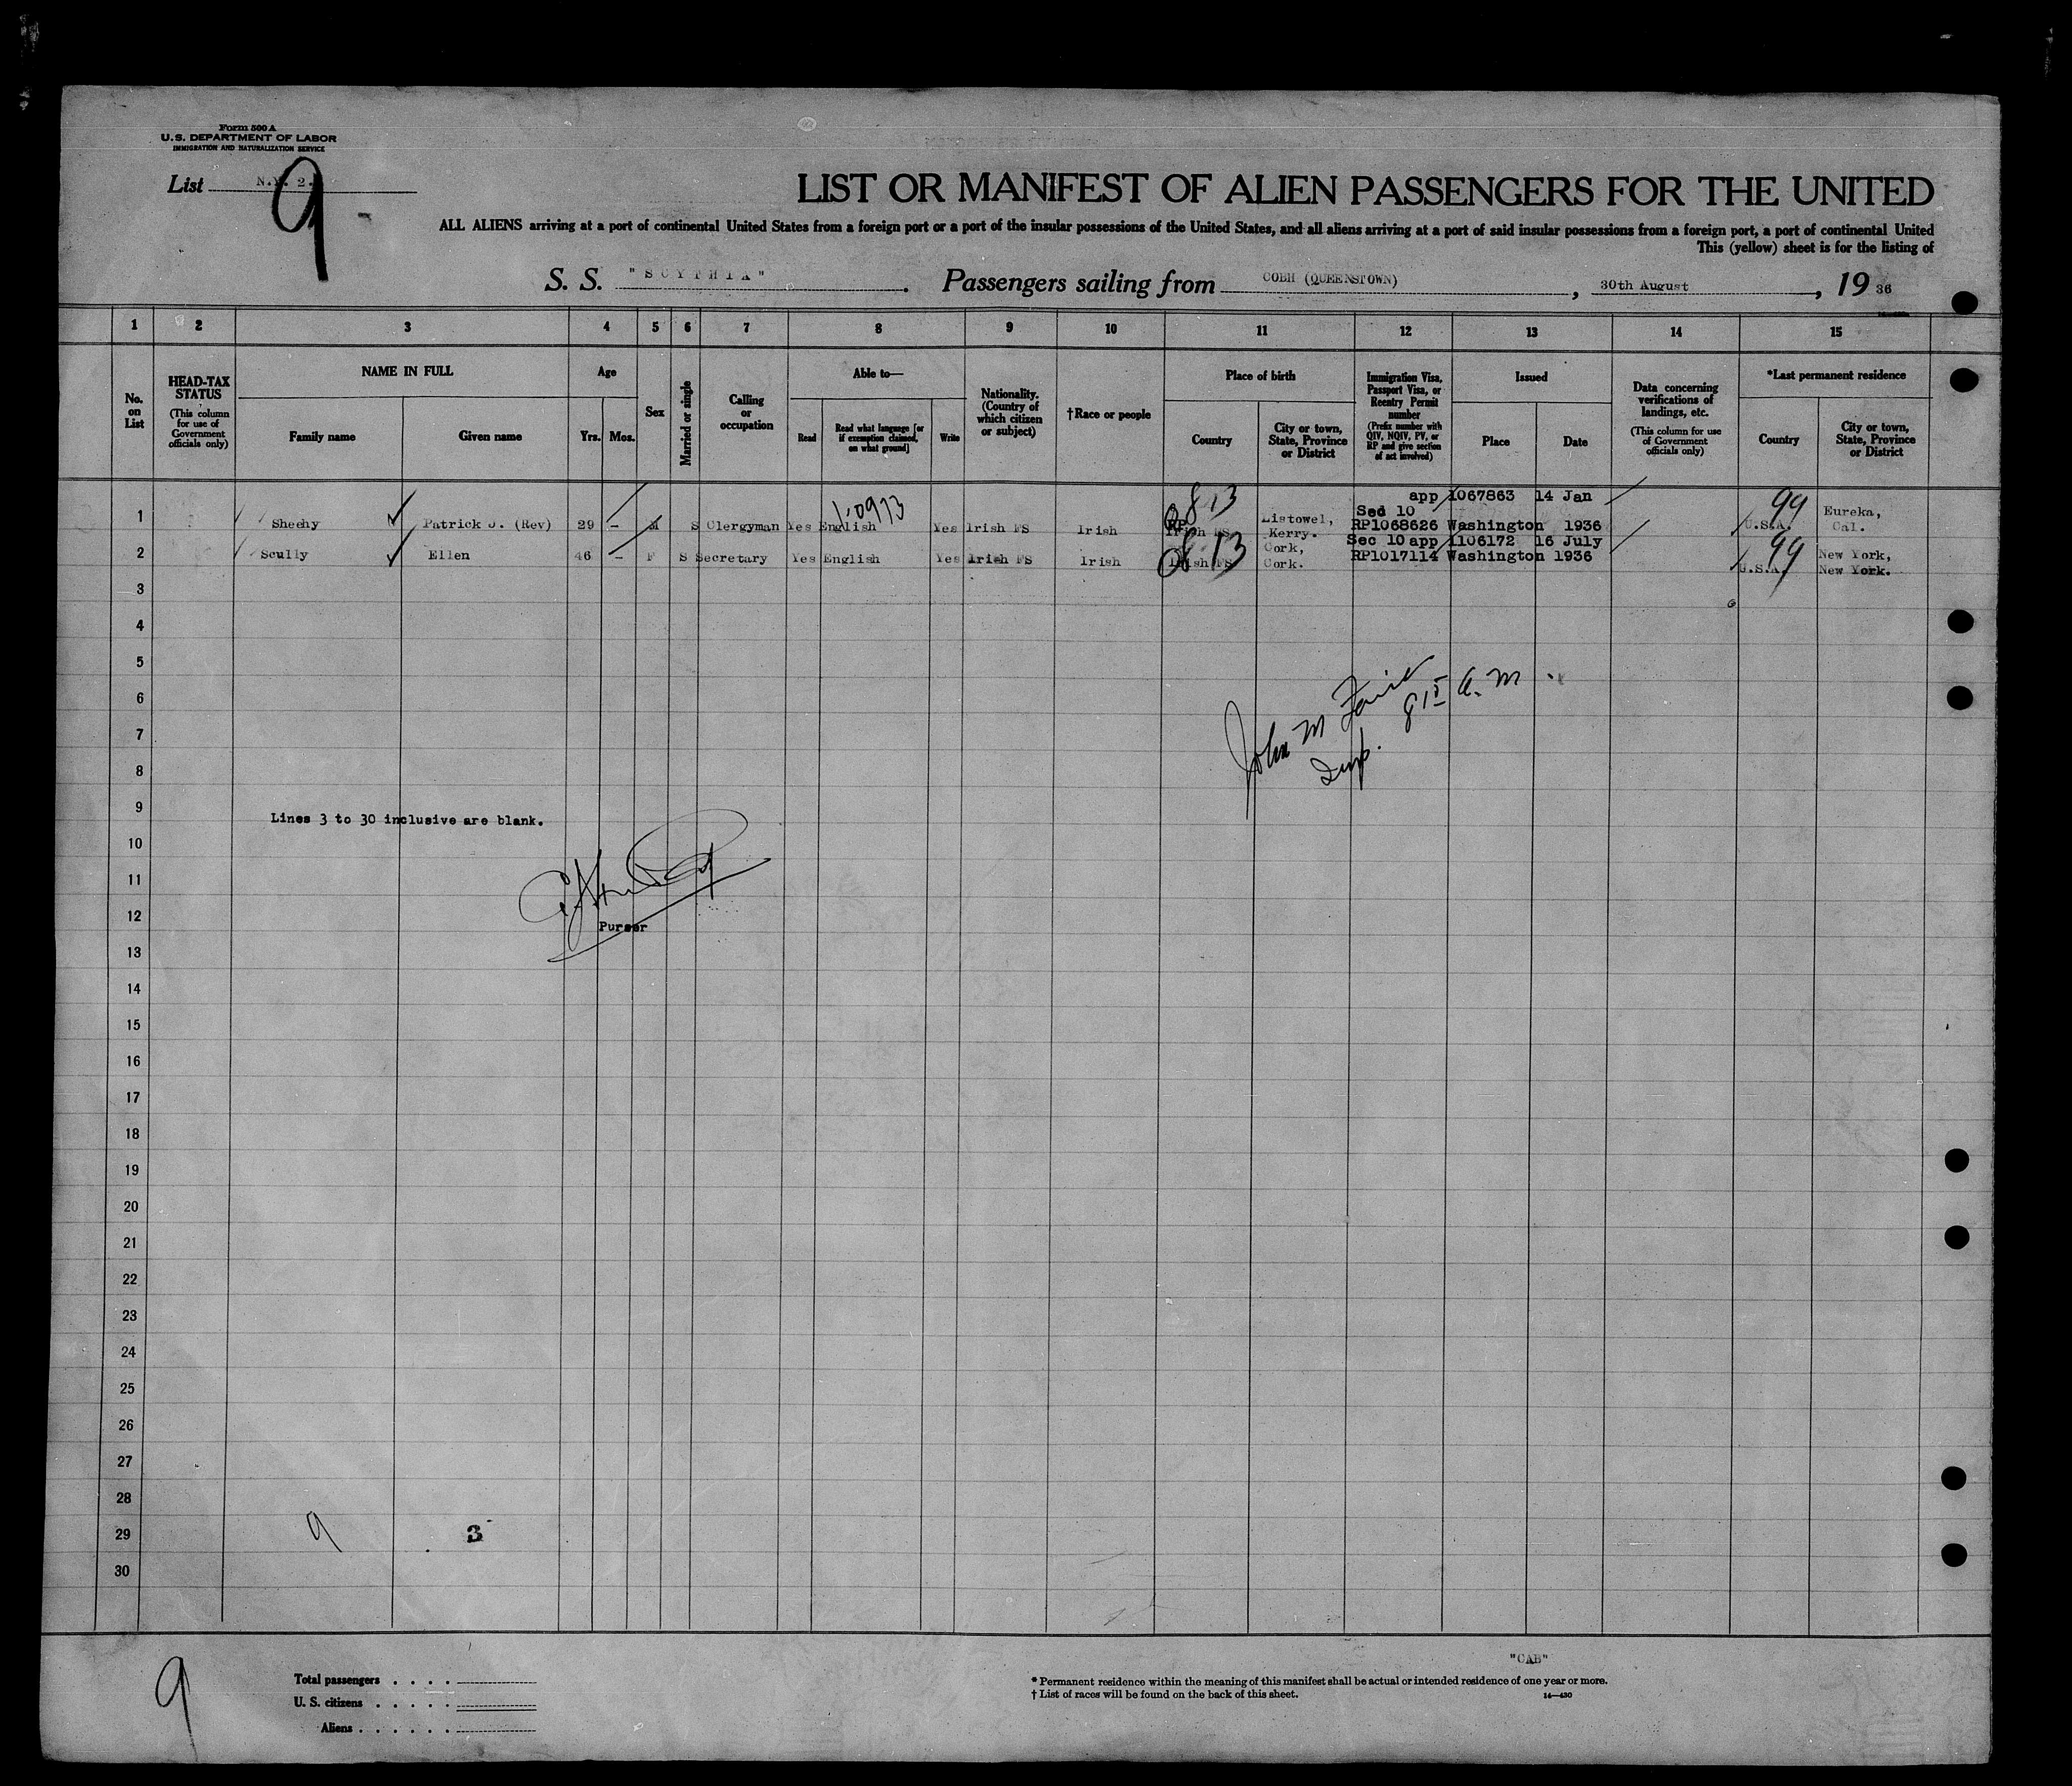 Form 500 A
U.S. DEPARTMENT OF LABOR
IMMIGRATION AND NATURALIZATION SERVICE
List N.Y. 2.
9
LIST OR MANIFEST OF ALIEN PASSENGERS FOR THE UNITED
ALL ALIENS arriving at a port of continental United States from a foreign port or a port of the insular possessions of the United States, and all aliens arriving at a port of said insular possessions from a foreign port, a port of continental United
This (yellow) sheet is for the listing of
S. S. "SCYTHIA". Passengers sailing from COBH (QUEENSTOWN), 30th August, 19 36
1 2 3 4 5 6 7 8 9 10 11 12 13 14 15
No. on List
HEAD-TAX STATUS
(This column for use of Government officials only)
NAME IN FULL
Family name
Given name
Age
Yrs.
Mos.
Sex
Married or single
Calling or occupation
Able to—
Read
Read what language [or if exemption claimed, on what ground]
Write
Nationality. (Country of which citizen or subject)
†Race or people
Place of birth
Country
City or town, State, Province or District
Immigration Visa, Passport Visa, or Reentry Permit number
(Prefix number with QIV, NQIV, PV, or RP and give section of act involved)
Issued
Place
Date
Data concerning verifications of landings, etc.
(This column for use of Government officials only)
*Last permanent residence
Country
City or town, State, Province or District
app 1067863 14 Jan
1 Sheehy Patrick J. (Rev) 29 – M S Clergyman Yes English Yes Irish FS Irish Irish FS Listowel, Kerry. Sec 10 RP1068626 Washington 1936 U.S.A. Eureka, Cal.
1-0973
0813
99
Sec 10 app 1106172 16 July
2 Scully Ellen 46 – F S Secretary Yes English Yes Irish FS Irish Irish FS Cork, Cork. RP1017114 Washington 1936 U.S.A. New York, New York.
0813
99
3
4
5
6
7
8
9
10
11
12
13
14
15
16
17
18
19
20
21
22
23
24
25
26
27
28
29
30
John M
Insp.
8 15 A. M.
Lines 3 to 30 inclusive are blank.
Purser
9
3
9
Total passengers . . . .
U. S. citizens . . . . .
Aliens . . . . . .
"CAB"
* Permanent residence within the meaning of this manifest shall be actual or intended residence of one year or more.
† List of races will be found on the back of this sheet.
14—430